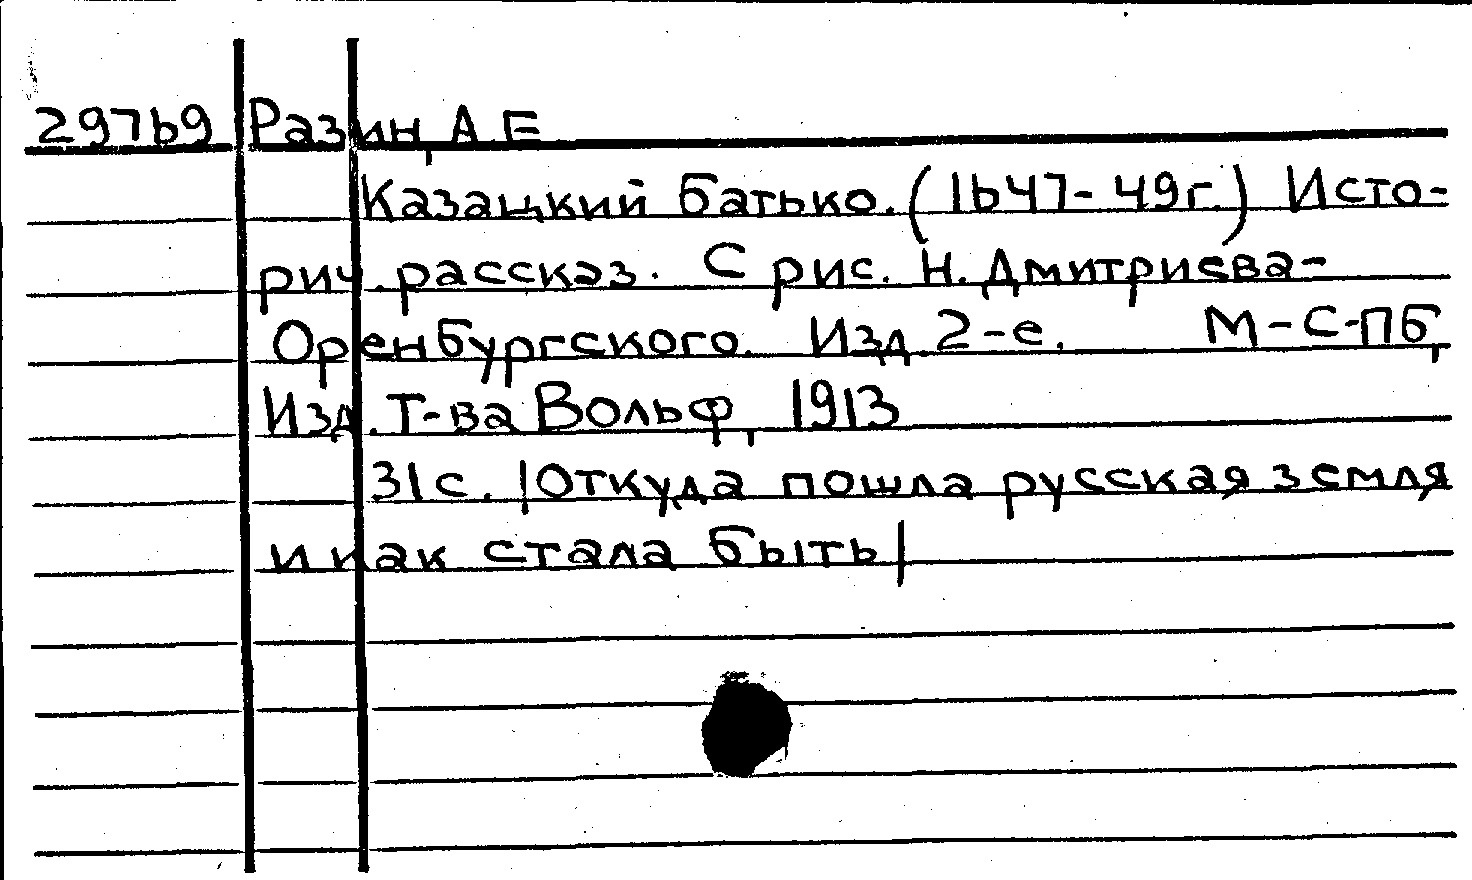 29769 Разин, А.Е
Казацкий батько. (1647-49г.) Исто-
рич. рассказ. С рис. Н. Дмитриева-
Оренбургского. Изд. 2-е. М-С-ПБ,
Изд. Т-ва Вольф, 1913
31с. |Откуда пошла русская земля
и как стала быть|